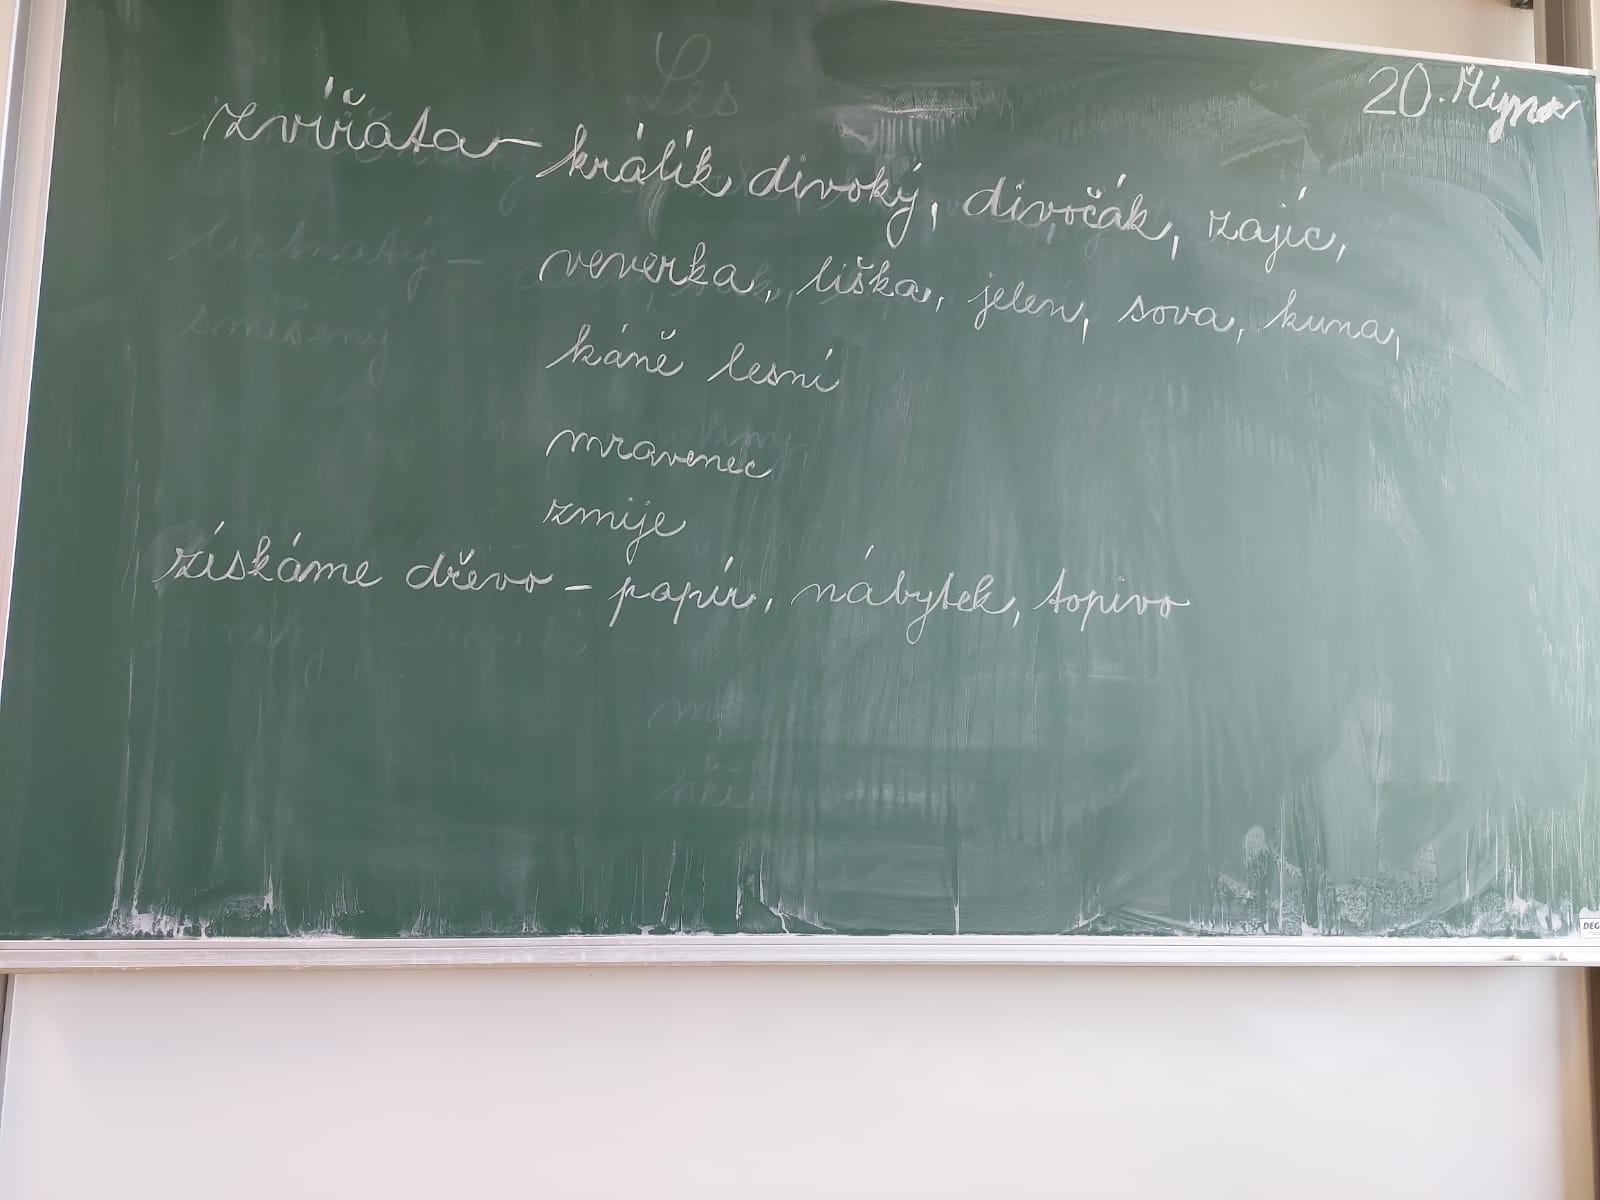 Les
20. října
zvířata - králík divoký, divočák, zajíc,
veverka, liška, jelen, sova, kuna,
listnatý -
smíšený
káně lesní
mravenec
zmije
získáme dřevo - papír, nábytek, topivo
DEG